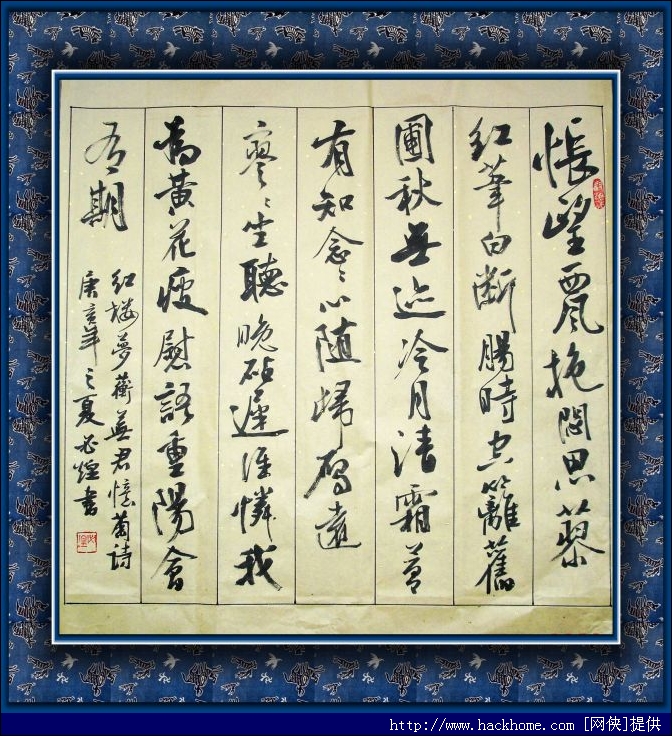 悵望西風抱悶思蓼
紅葦白斷腸時空籬舊
圃秋無迹冷月清霜夢
有知念〻心隨歸雁遠
寥〻坐聽晚砧遲誰憐我
為黃花瘦慰語重陽會
有期
紅樓夢蘅蕪君憶菊詩
庚寅年之夏 煌書
http://www.hackhome.com [网侠]提供